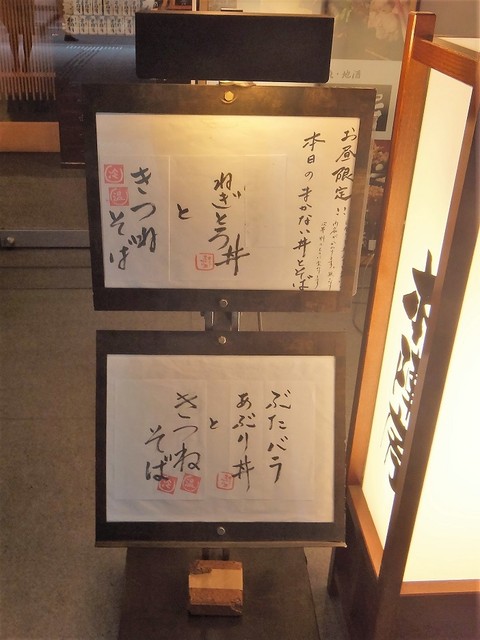 お昼限定
本日のまかない丼とそば
ねぎとろ丼
と
きつね
そば
ぶたバラ
あぶり丼
と
きつね
そば